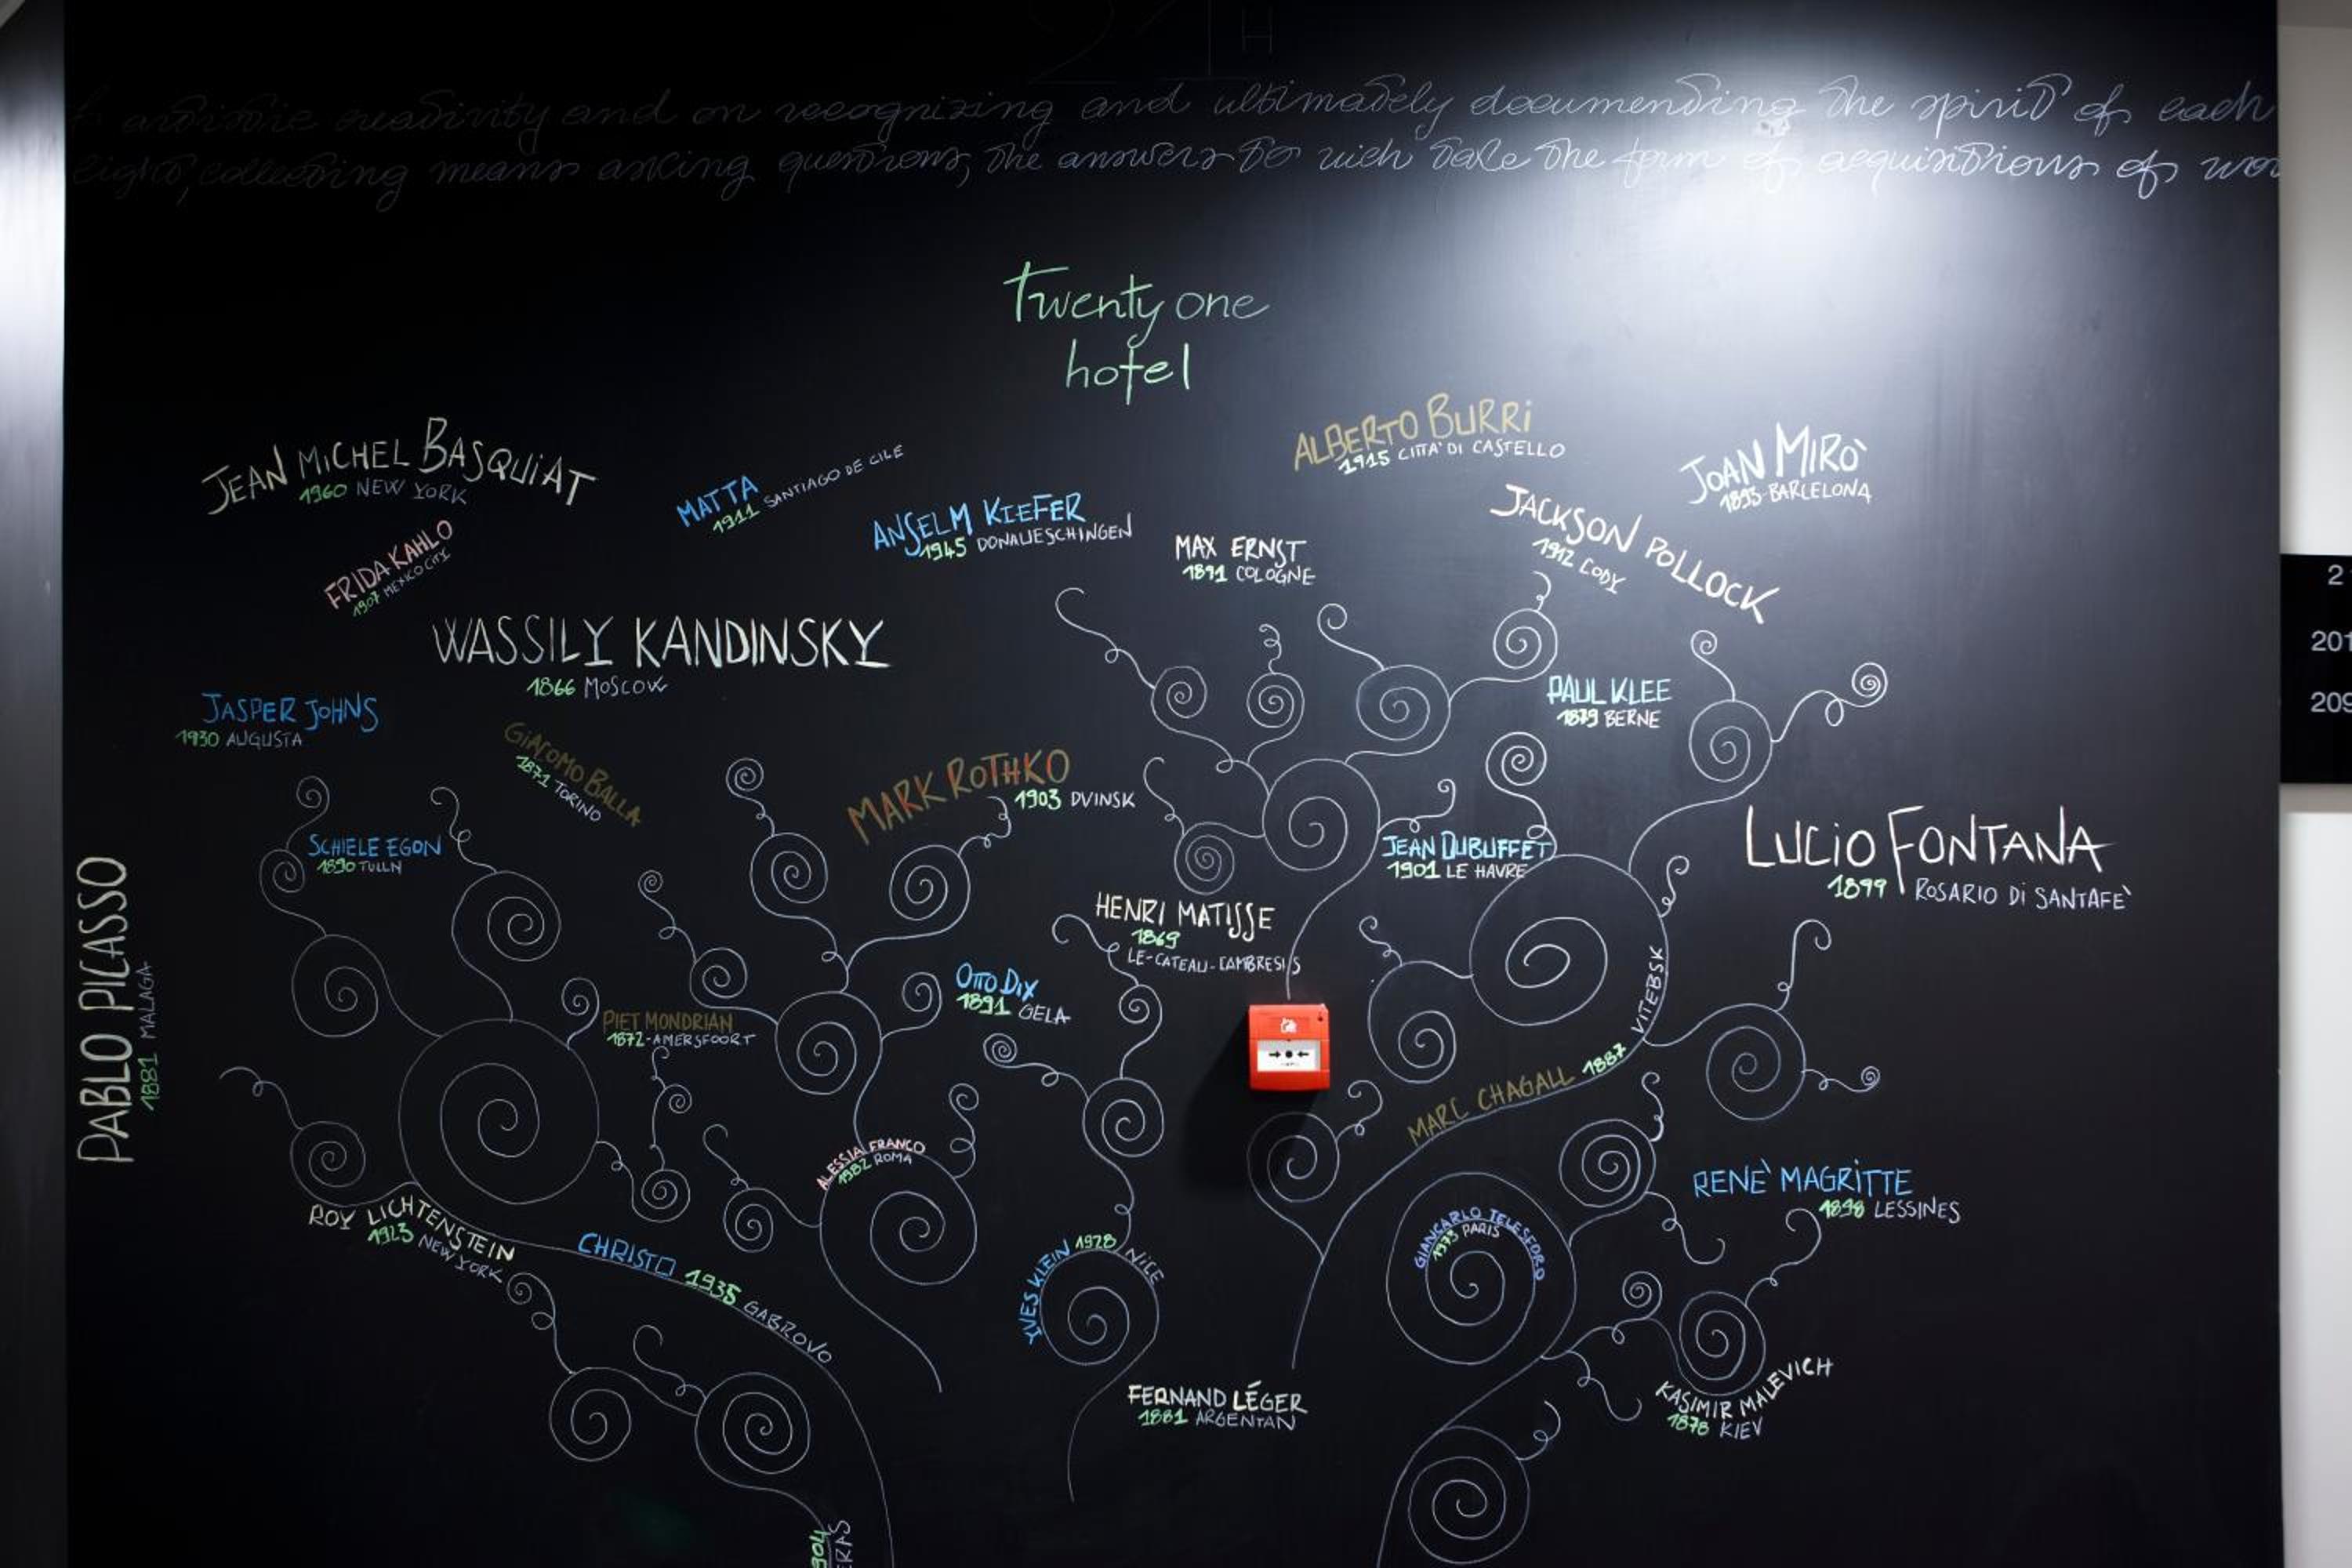 21H
artistic creativity and on recognizing and ultimately documenting the spirit of each
eight, collecting means asking questions, the answers to wich take the form of acquisitions of
Twenty one
hotel
JEAN MICHEL BASQUIAT
1960 NEW YORK
MATTA
1911 SANTIAGO DE CILE
ALBERTO BURRI
1915 CITTA' DI CASTELLO
JOAN MIRÒ
1893-BARCELONA
FRIDA KAHLO
1907 MEXICO CITY
ANSELM KIEFER
1945 DONAUESCHINGEN
MAX ERNST
1891 COLOGNE
JACKSON POLLOCK
1912 CODY
2
201
209
WASSILY KANDINSKY
1866 MOSCOW
JASPER JOHNS
1930 AUGUSTA
GIACOMO BALLA
1871 TORINO
MARK ROTHKO
1903 DVINSK
PAUL KLEE
1879 BERNE
SCHIELE EGON
1890 TULLN
JEAN DUBUFFET
1901 LE HAVRE
LUCIO FONTANA
1899 ROSARIO DI SANTAFE'
PABLO PICASSO
1881 MALAGA
HENRI MATISSE
1869
LE-CATEAU-CAMBRESIS
OTTO DIX
1891 GELA
PIET MONDRIAN
1872-AMERSFOORT
MARC CHAGALL 1887 VITEBSK
ALESSIA FRANCO
1982 ROMA
RENE' MAGRITTE
1898 LESSINES
ROY LICHTENSTEIN
1923 NEW YORK
CHRISTO 1935 GABROVO
YVES KLEIN 1928 NICE
GIANCARLO TELESFORO
1973 PARIS
FERNAND LÉGER
1881 ARGENTAN
KASIMIR MALEVICH
1878 KIEV
904
ERAS